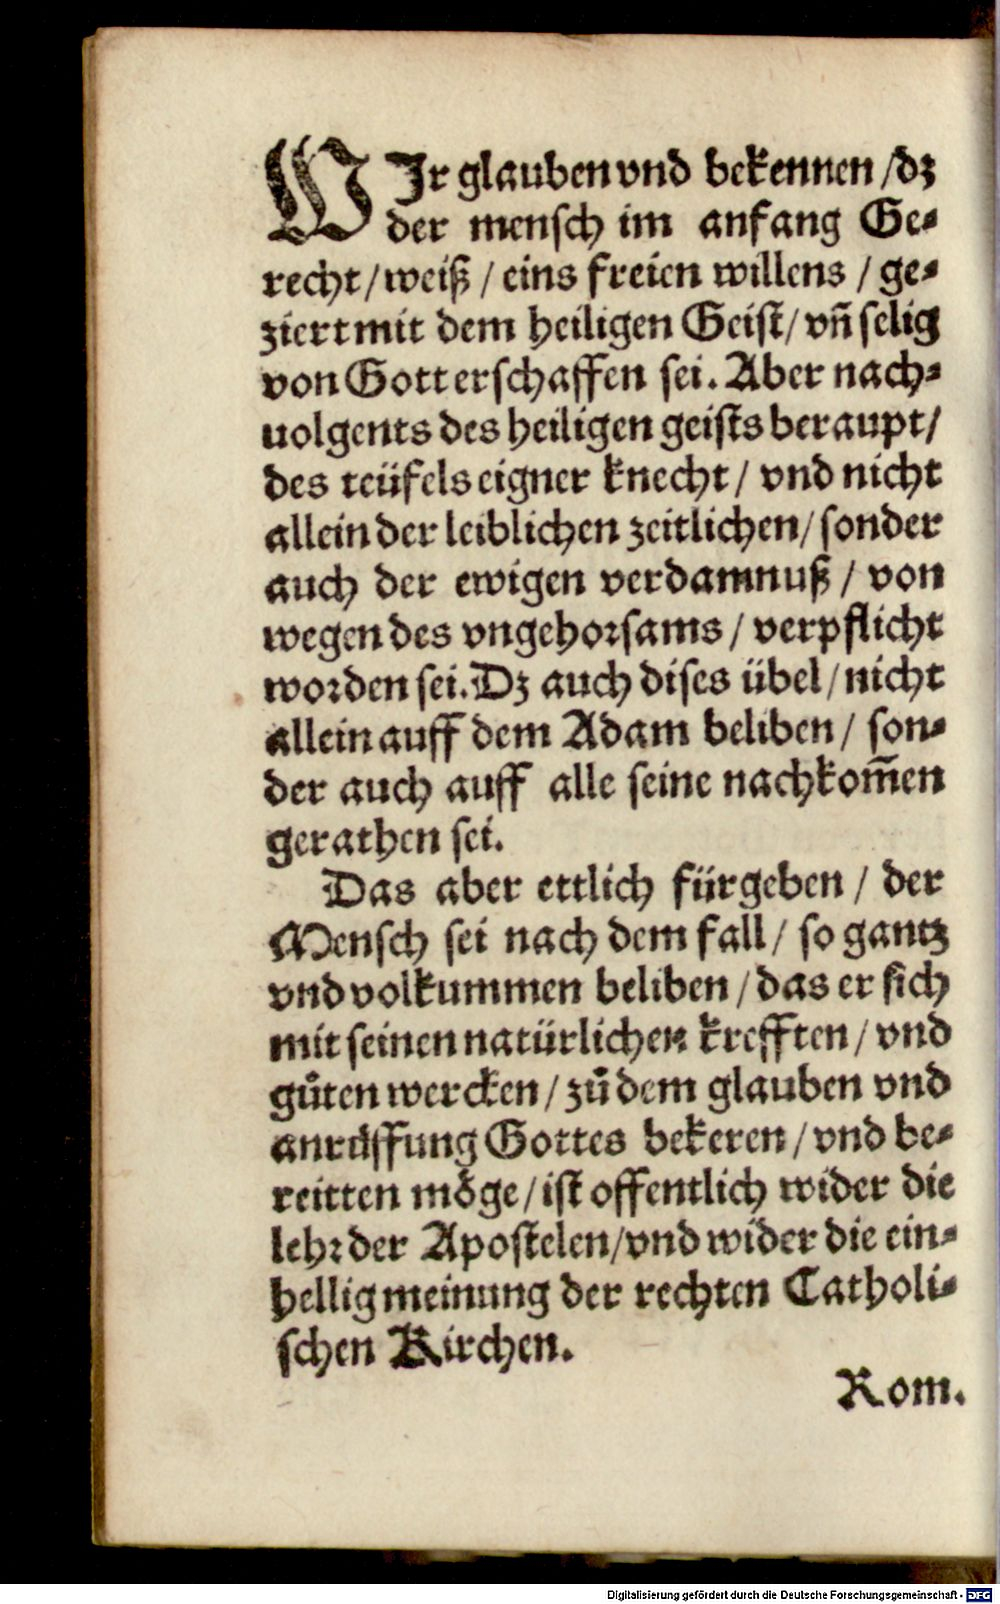 WIr glauben vnd bekennen / dz
der mensch im anfang Ge⸗
recht / weiß / eins freien willens / ge⸗
ziert mit dem heiligen Geist / vñ selig
von Gott erschaffen sei. Aber nach⸗
uolgents des heiligen geists beraupt /
des teüfels eigner knecht / vnd nicht
allein der leiblichen zeitlichen / sonder
auch der ewigen verdamnuß / von
wegen des vngehorsams / verpflicht
worden sei. Dz auch dises übel / nicht
allein auff dem Adam beliben / son⸗
der auch auff alle seine nachkom̃en
gerathen sei.
Das aber ettlich fürgeben / der
Mensch sei nach dem fall / so gantz
vnd volkummen beliben / das er sich
mit seinen natürlichen krefften / vnd
gůten wercken / zů dem glauben vnd
anrüffung Gottes bekeren / vnd be⸗
reitten möge / ist offentlich wider die
lehr der Apostelen / vnd wider die ein⸗
hellig meinung der rechten Catholi⸗
schen Kirchen.
Rom.
Digitalisierung gefördert durch die Deutsche Forschungsgemeinschaft - DFG